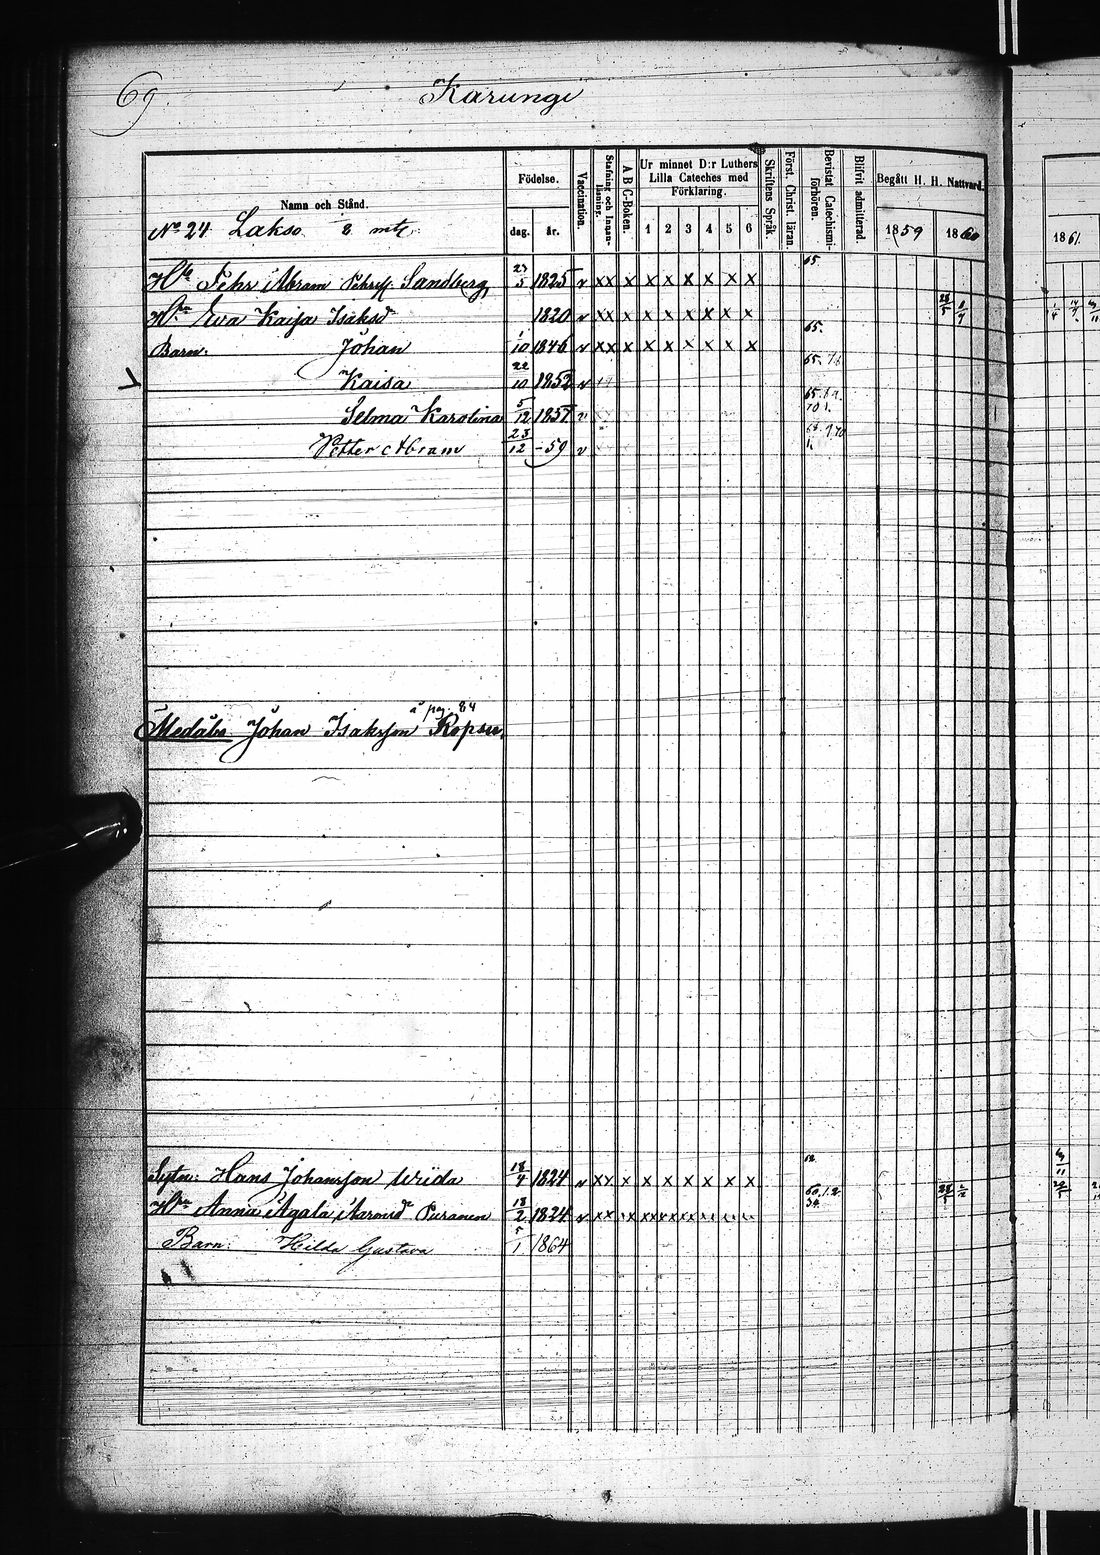 69
Karungi
Namn och Stånd.
Födelse.
dag.
år.
Vaccination.
Stafning och Innanläsning.
A B C-Boken.
Ur minnet D:r Luthers Lilla Cateches med Förklaring.
1 2 3 4 5 6
Skriftens Språk.
Först. Christ. läran.
Bevistat Catechismiförhören.
Blifvit admitterad.
Begått H. H. Nattvard.
1859 1860
1861.
No 24 Lakso 8 mtl
Pehr Abram Sandberg 23/5 1825 v xx x x x x x x x 65
Eva Kaija Isaksd 1820 v xx x x x x x x x
Barn: Johan 1/10 1846 v xx x x x x x x x 65.
Kaisa 22/10 1852 v 65.
Selma Karolina 5/12 1857 v 65.
Petter Abram 23/12 -59 v
å pag. 84
Medåbo Johan Isaksson Kopsu
Hans Johansson Wiida 18/4 1824 v xx x x x x x x x
Anna Agata 18/2 1824 v xx x x x x x
Barn: Hilda Gustava 5/1 1864